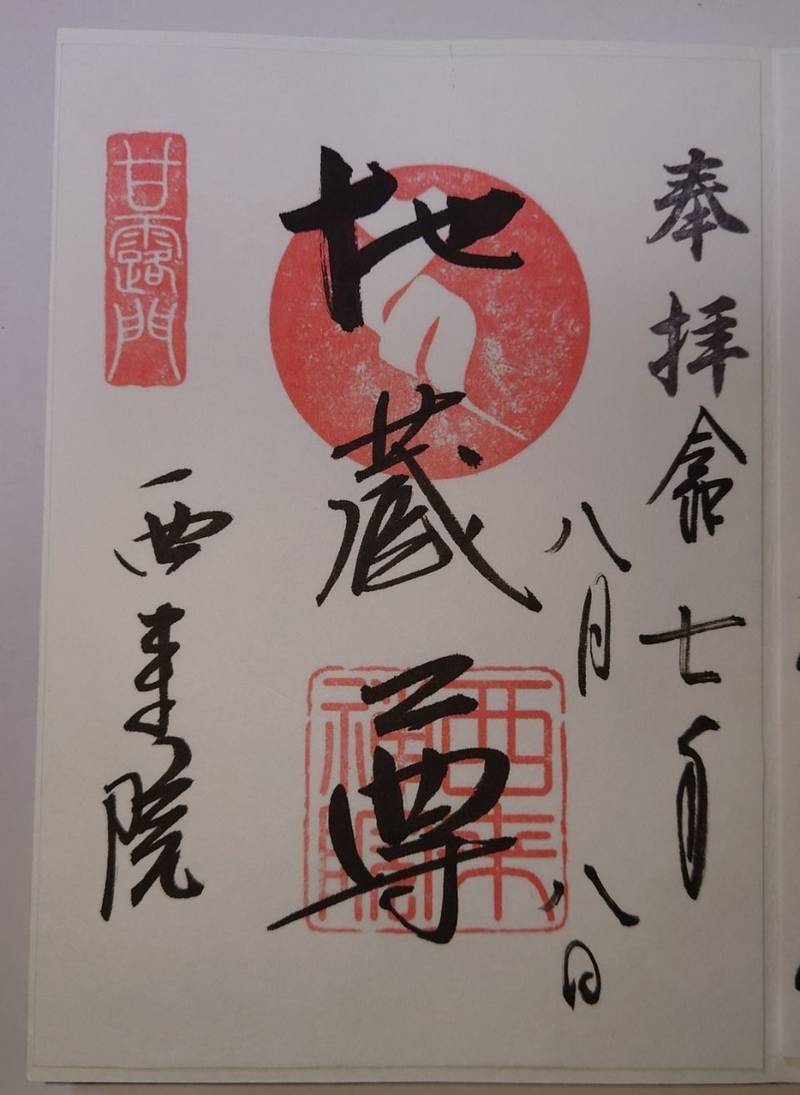 奉拝 令和七年
八月八日
地蔵尊
西来
福
甘露門
西来院